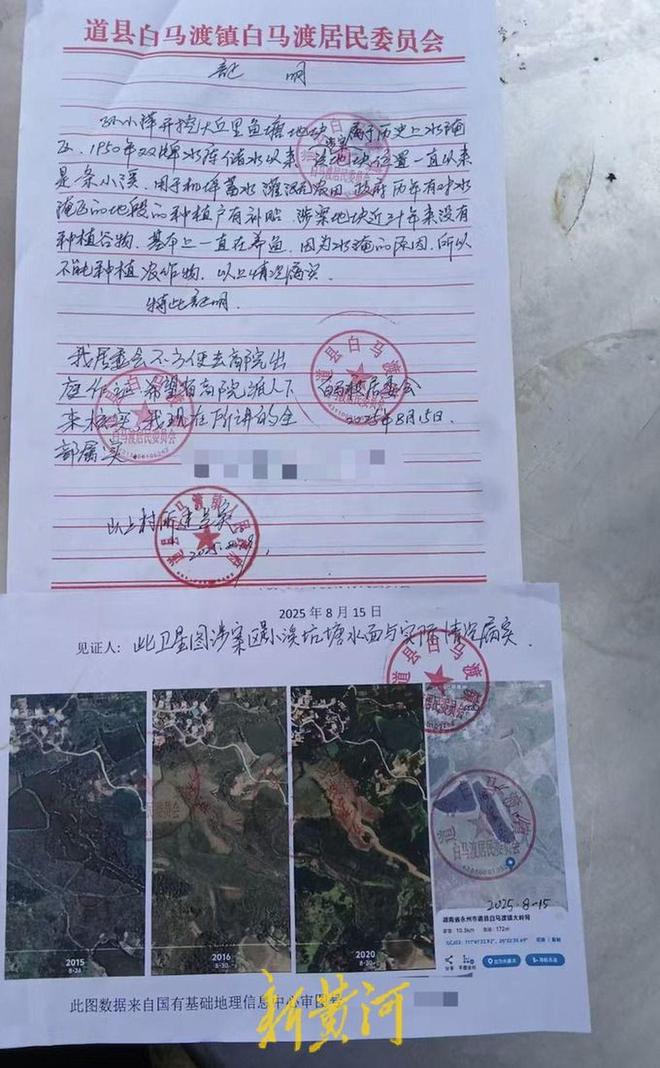 道县白马渡镇白马渡居民委员会
证 明
孙小萍开挖大丘里鱼塘地块 属于历史上水淹
区、1950年双牌水库储水以来，该地块位置一直以来
是条小溪、用于积样蓄水灌溉农田、政府历年有对水
淹区的地段的种植户有补贴、涉案地块近三十年来没有
种植谷物、基本上一直在养鱼、因为水淹的原因、所以
不能种植农作物、以上情况属实、
特此证明.
我居委会不方便去高院出
庭作证 希望省高院派人下
来核实、我现在所讲的全
部属实
居委会
2025年8月15日.
2025年8月15日
见证人：此卫星图涉案区是小溪坑塘水面与实际情况属实.
道县白马渡镇
白马渡居民委员会
2015
8-30
2016
8-30
2020
8-30
2025-8-15
湖南省永州市道县白马渡镇大岭
172m
分享
此图数据来自国有基础地理信息中心审图
新黄河